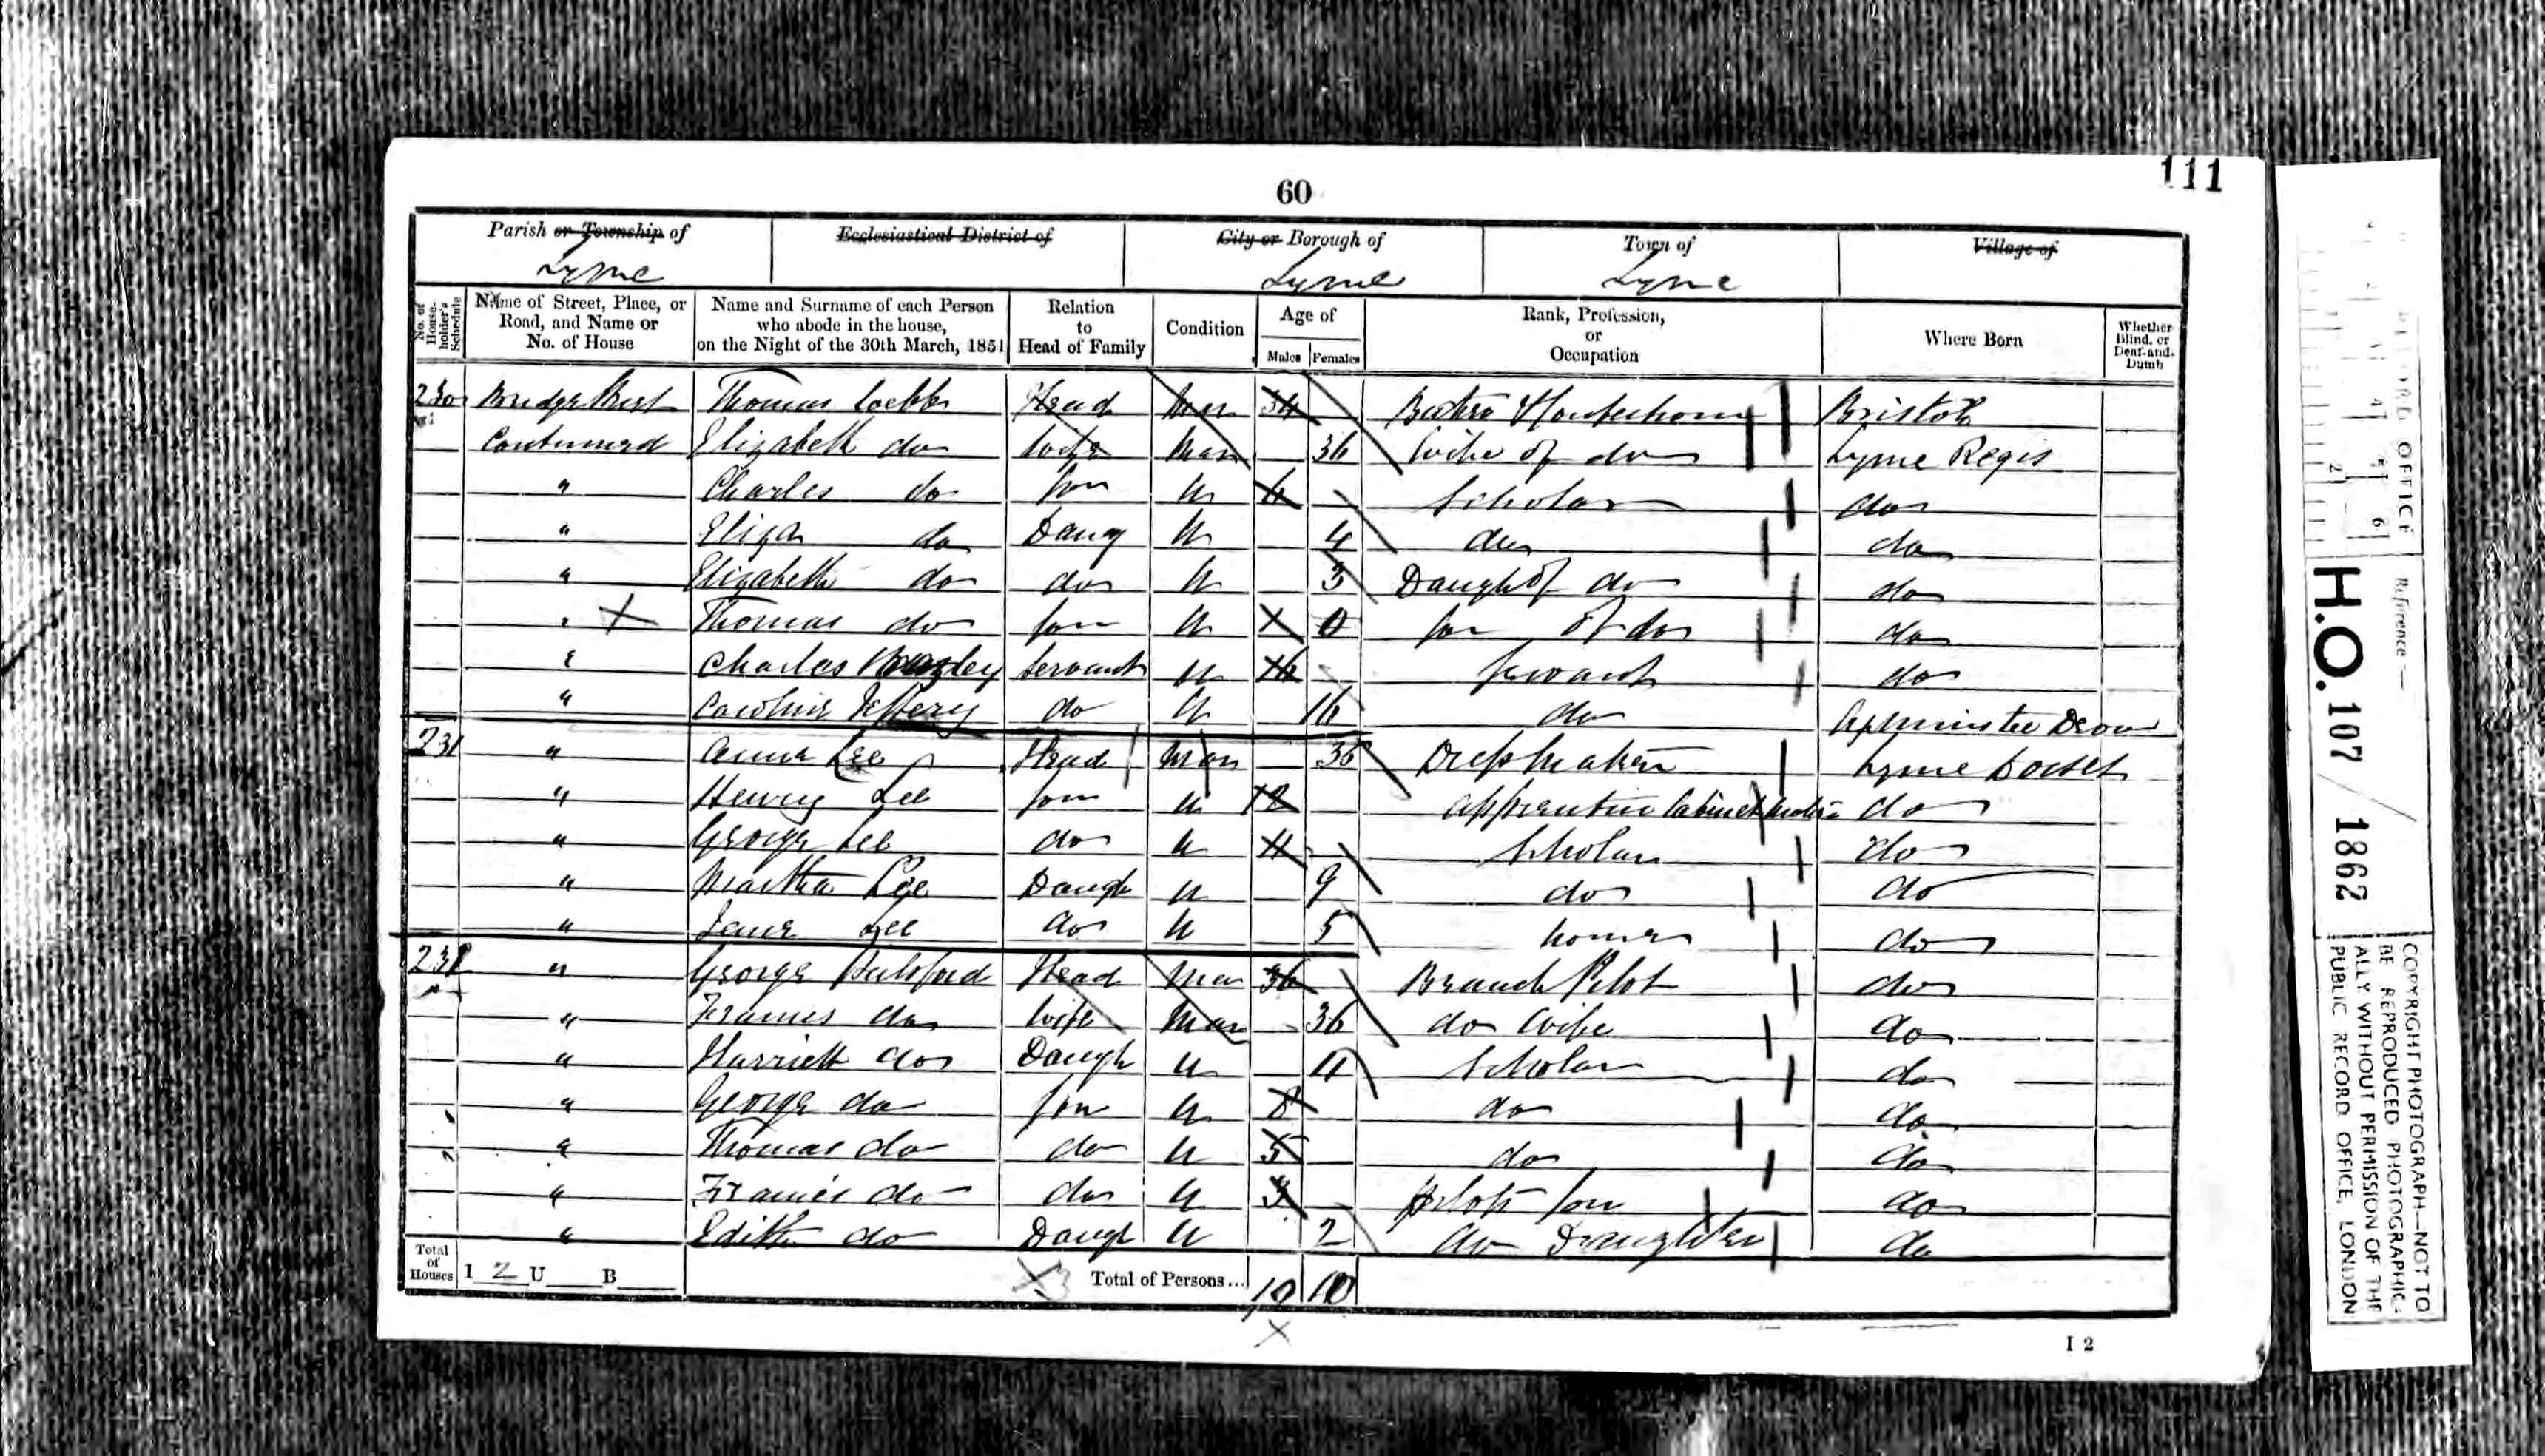 111
60
Parish or Township of
Lyme
Ecclesiastical District of
City or Borough of
Lyme
Town of
Lyme
Village of
No. of House-holder's Schedule
Name of Street, Place, or Road, and Name or No. of House
Name and Surname of each Person who abode in the house, on the Night of the 30th March, 1851
Relation to Head of Family
Condition
Age of
Males Females
Rank, Profession, or Occupation
Where Born
Whether Blind, or Deaf-and-Dumb
230 Bridge Thomas Head Mar 34 Bristol
Continued Elizabeth do Wife Mar 36 Wife of do Lyme Regis
" Charles do Son U Scholar do
" Eliza do Daug U 4 do do
" Elizabeth do do U 3 Daugh of do do
" Thomas do Son U Son of do do
" Charles Servant U 14 Servant do
" Caroline Jeffery do U 16 do Axminster Devon
231 " Anna Lee Head Mar 36 Dressmaker Lyme Dorset
" Henry Lee Son U 12 Apprentice Cabinet Maker do
" George Lee do U 11 Scholar do
" Martha Lee Daugh U 9 do do
" Jane Lee do U 5 home do
232 " George Head Mar 36 Branch Pilot do
" Frances do Wife Mar 36 do Wife do
" Harriett do Daugh U 11 Scholar do
" George do Son U 8 do do
" Thomas do do U 5 do do
" Francis do do U 3 Pilots Son do
" Edith do Daugh U 2 do Daughter do
Total of Houses I 2 U B
Total of Persons... 10 10
I 2
RECORD OFFICE
Reference —
H.O. 107 / 1862
COPYRIGHT PHOTOGRAPH—NOT TO
BE REPRODUCED PHOTOGRAPHIC-
ALLY WITHOUT PERMISSION OF THE
PUBLIC RECORD OFFICE, LONDON